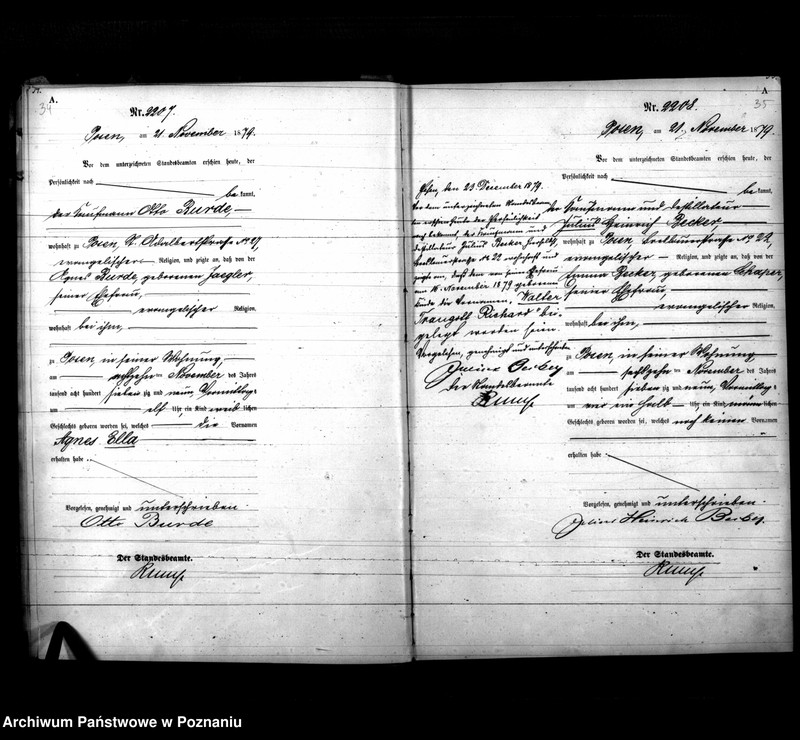 A.
34
Nr. 2207.
Posen, am 21. November 1879.
Vor dem unterzeichneten Standesbeamten erschien heute, der
Persönlichkeit nach
be kannt,
der Kaufmann Otto Burde,
wohnhaft zu Posen, St. Adalbertstraße No
evangelischer Religion, und zeigte an, daß von der
Agnes Burde, geborenen Jaegler,
seiner Ehefrau,
evangelischer Religion,
wohnhaft bei ihm,
zu Posen, in seiner Wohnung,
am achtzehn ten November des Jahres
tausend acht hundert sieben zig und neun, Vormittags
um elf Uhr ein Kind weib lichen
Geschlechts geboren worden sei, welches die Vornamen
Agnes Ella
erhalten habe.
Vorgelesen, genehmigt und unterschrieben.
Otto Burde
Der Standesbeamte.
A
35
Nr. 2208.
Posen, am 21. November 1879.
Vor dem unterzeichneten Standesbeamten erschien heute, der
Persönlichkeit nach
be kannt,
der Kaufmann und Destillateur
Julius Heinrich Becker,
wohnhaft zu Posen, Breslauerstraße No 22,
evangelischer Religion, und zeigte an, daß von der
Becker, geborenen
seiner Ehefrau,
evangelischer Religion,
wohnhaft bei ihm,
zu Posen, in seiner Wohnung
am sechszehn ten November des Jahres
tausend acht hundert sieben zig und neun, Vormittags
um ein halb Uhr, ein Kind männ lichen
Geschlechts geboren worden sei, welches noch keinen Vornamen
erhalten habe.
Vorgelesen, genehmigt und unterschrieben.
Julius Heinrich Becker.
Der Standesbeamte.
Posen, den 23. Dezember 1879.
Vor dem unterzeichneten Standesbeamten
erschien heute der Persönlichkeit
nach bekannt, der Kaufmann und
Destillateur Julius Becker
Breslauerstraße No 22 wohnhaft und
zeigte an, daß dem von seiner Ehefrau
am 16. November 1879 geborenen
Kinde die Vornamen "Walter
Traugott Richard" bei-
gelegt worden seien.
Vorgelesen, genehmigt und unterschrieben
Julius Becker
Der Standesbeamte
Archiwum Państwowe w Poznaniu